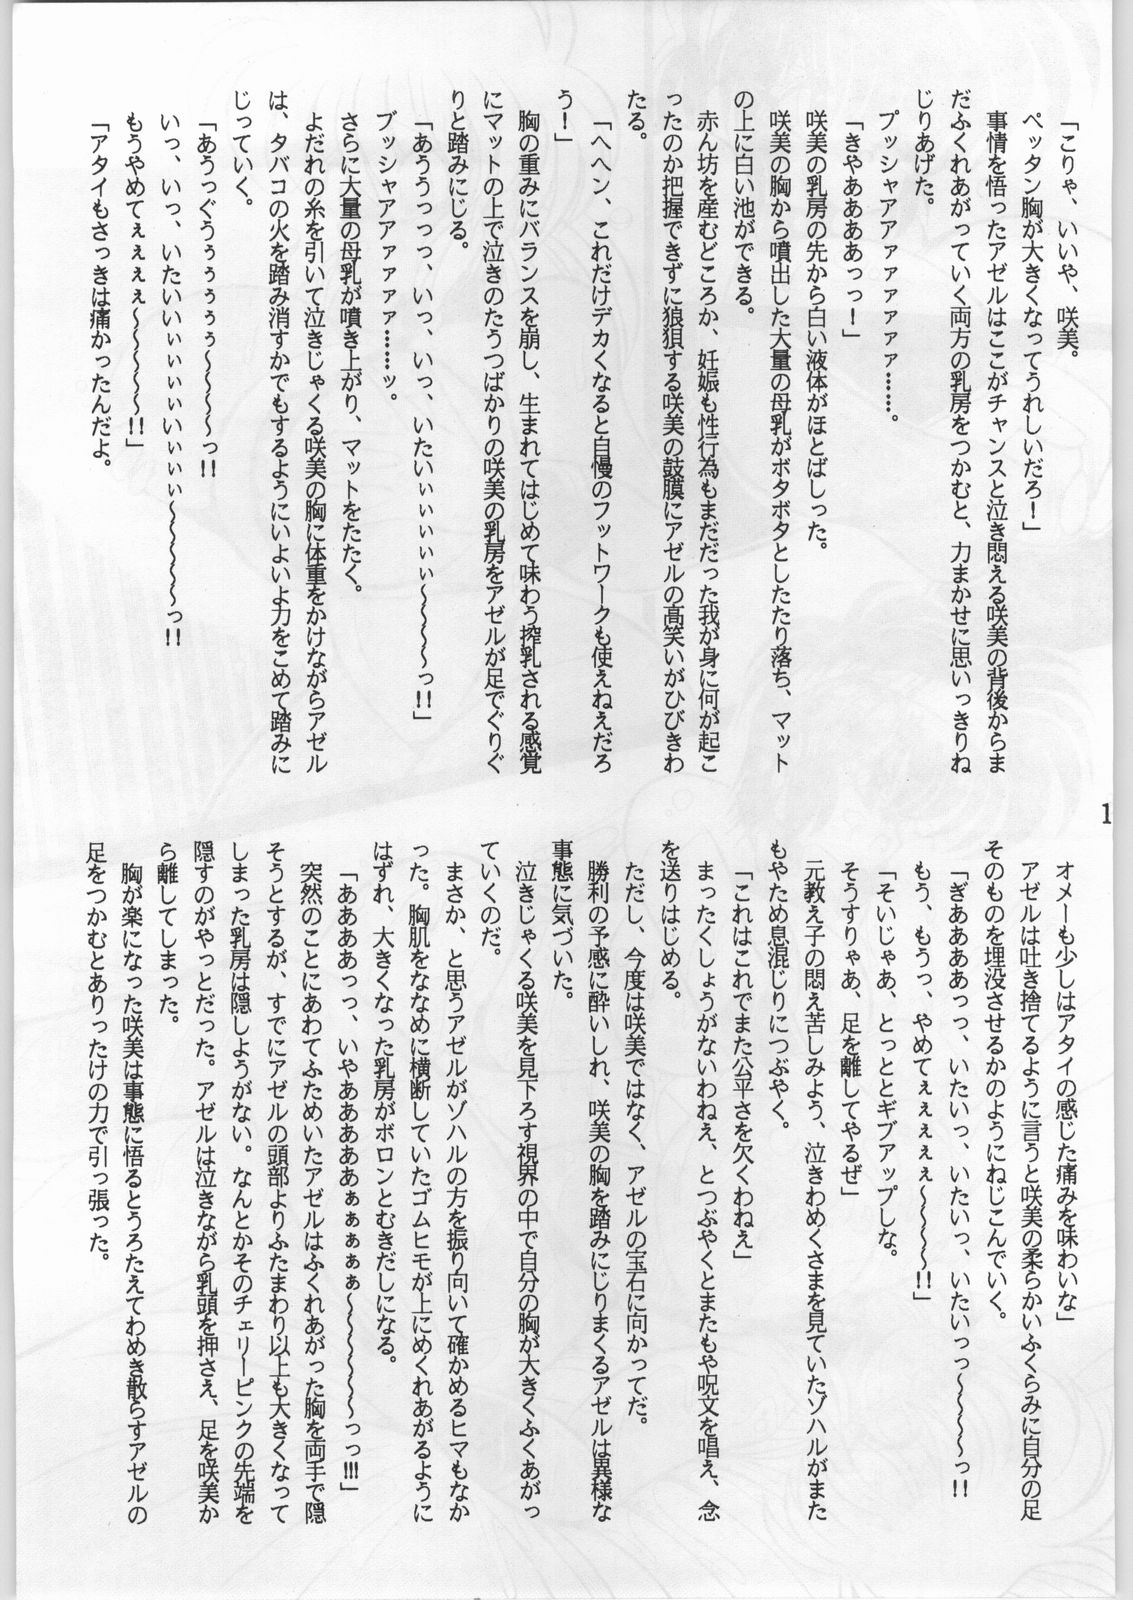 「こりゃ、いいや、咲美。
ペッタン胸が大きくなってうれしいだろ!」
事情を悟ったアゼルはここがチャンスと泣き悶える咲美の背後からま
だふくれあがっていく両方の乳房をつかむと、力まかせに思いっきりね
じりあげた。
プッシャアアァァァァァァ……。
「きやああああっっ!」
咲美の乳房の先から白い液体がほとばしった。
咲美の胸から噴出した大量の母乳がボタボタとしたたり落ち、マット
の上に白い池ができる。
赤ん坊を産むどころか、妊娠も性行為もまだだった我が身に何が起こ
ったのか把握できずに狼狽する咲美の鼓膜にアゼルの高笑いがひびきわ
たる。
「へヘン、これだけデカくなると自慢のフットワークも使えねえだろ
う!」
胸の重みにバランスを崩し、生まれてはじめて味わう搾乳される感覚
にマットの上で泣きのたうつばかりの咲美の乳房をアゼルが足でぐりぐ
りと踏みにじる。
「あううっっっ、いっ、いっ、いたいぃぃぃぃぃ～～～～っ!!」
ブッシャアアァァァァ……ッ。
さらに大量の母乳が噴き上がり、マットをたたく。
よだれの糸を引いて泣きじゃくる咲美の胸に体重をかけながらアゼル
は、タバコの火を踏み消すかでもするようにいよいよ力をこめて踏みに
じっていく。
「あうっぐうぅぅぅぅぅ～～～～っ!!
いっ、いっ、いたいいぃぃぃぃいぃぃぃぃ～～～～～っ!!
もうやめてぇぇぇぇ～～～～～!!」
「アタイもさっきは痛かったんだよ。
オメーも少しはアタイの感じた痛みを味わいな」
アゼルは吐き捨てるように言うと咲美の柔らかいふくらみに自分の足
そのものを埋没させるかのようにねじこんでいく。
「ぎああああっっ、いたいっ、いたいっ、いたいっっ～～～～～っ!!
もう、もうっ、やめてぇぇぇぇぇ～～～～!!」
「そいじゃあ、とっととギブアップしな。
そうすりゃあ、足を離してやるぜ」
元教え子の悶え苦しみよう、泣きわめくさまを見ていたゾハルがまた
もやため息混じりにつぶやく。
「これはこれでまた公平さを欠くわねえ」
まったくしょうがないわねえ、とつぶやくとまたもや呪文を唱え、念
を送りはじめる。
ただし、今度は咲美ではなく、アゼルの宝石に向かってだ。
勝利の予感に酔いしれ、咲美の胸を踏みにじりまくるアゼルは異様な
事態に気づいた。
泣きじゃくる咲美を見下ろす視界の中で自分の胸が大きくふくあがっ
ていくのだ。
まさか、と思うアゼルがゾハルの方を振り向いて確かめるヒマもなか
った。胸肌をななめに横断していたゴムヒモが上にめくれあがるように
はずれ、大きくなった乳房がボロンとむきだしになる。
「ああああっっ、いやああああぁぁぁぁぁ～～～～～っっ!!!」
突然のことにあわてふためいたアゼルはふくれあがった胸を両手で隠
そうとするが、すでにアゼルの頭部よりふたまわり以上も大きくなって
しまった乳房は隠しようがない。なんとかそのチェリーピンクの先端を
隠すのがやっとだった。アゼルは泣きながら乳頭を押さえ、足を咲美か
ら離してしまった。
胸が楽になった咲美は事態に悟るとうろたえてわめき散らすアゼルの
足をつかむとありったけの力で引っ張った。
1